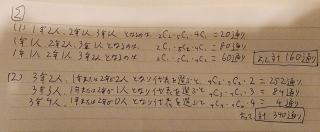 [2]
(1) 1年2人、2年1人、3年1人 となるのは 2C2・5C1・4C1 = 20通り
1年1人、2年2人、3年1人となるのは、2C1・5C2・4C1 = 80通り
1年1人 2年1人 3年2人となるのは 2C1・5C1・4C2 = 60通り よって計160通り
(2) 3年2人、1年または2年が2人となり代表を選ぶと、
= 252通り
3年3人、1年または2年が1人となり代表を選ぶと
= 84通り
3年4人、1年または2年が0人となり代表を選ぶと
= 4通り
よって計340通り